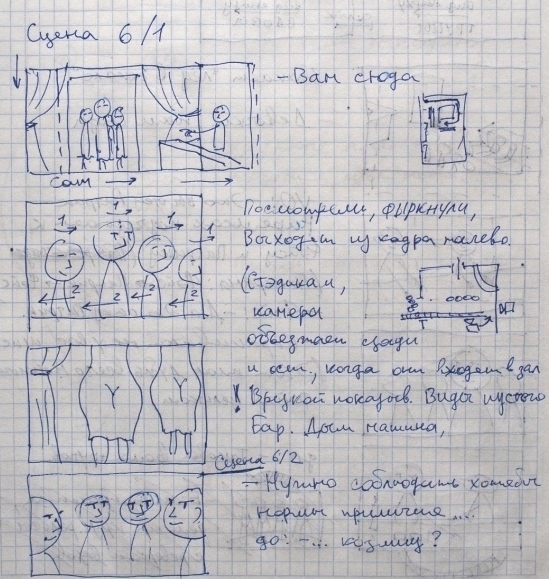 Сцена 6/1
- Вам сюда
cam
Посмотрели, фыркнули,
выходят из кадра налево.
1 1 1 1
2 2 2
(Стэдикам,
камера
объезжает сзади
и ост., когда они входят в зал
! Врезкой показыв. Виды пустого
Бар. Дым машина,
Y Y
Сцена 6/2
- Нужно соблюдать хотябы
нормы приличия ....
до: -...